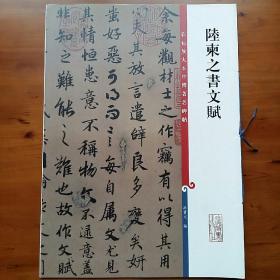 陸柬之書文賦
彩色放大本中國著名碑帖
孫寶文 編
余每觀材士之作竊有以得其用
心夫其放言遣辭良多變矣妍
蚩好惡可得而言每自屬文尤見
其情恒患意不稱物文不逮意蓋
非知之難能之難也故作文賦